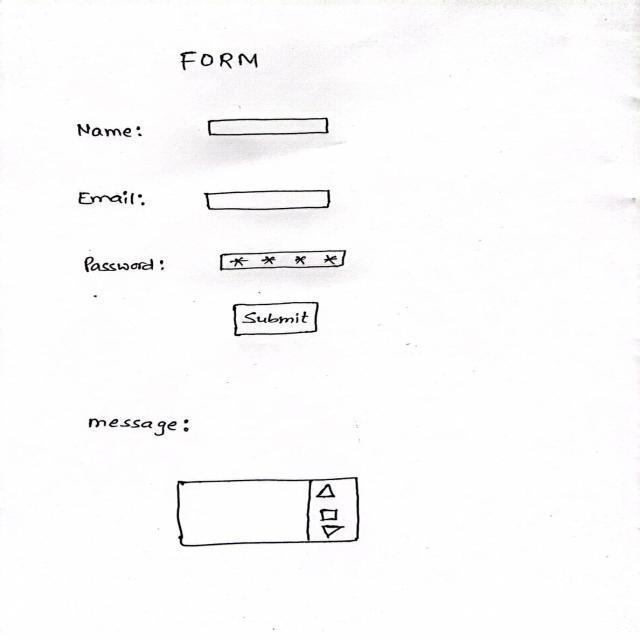 FORM
Name:
Email:
Password: * * * *
Submit
message: